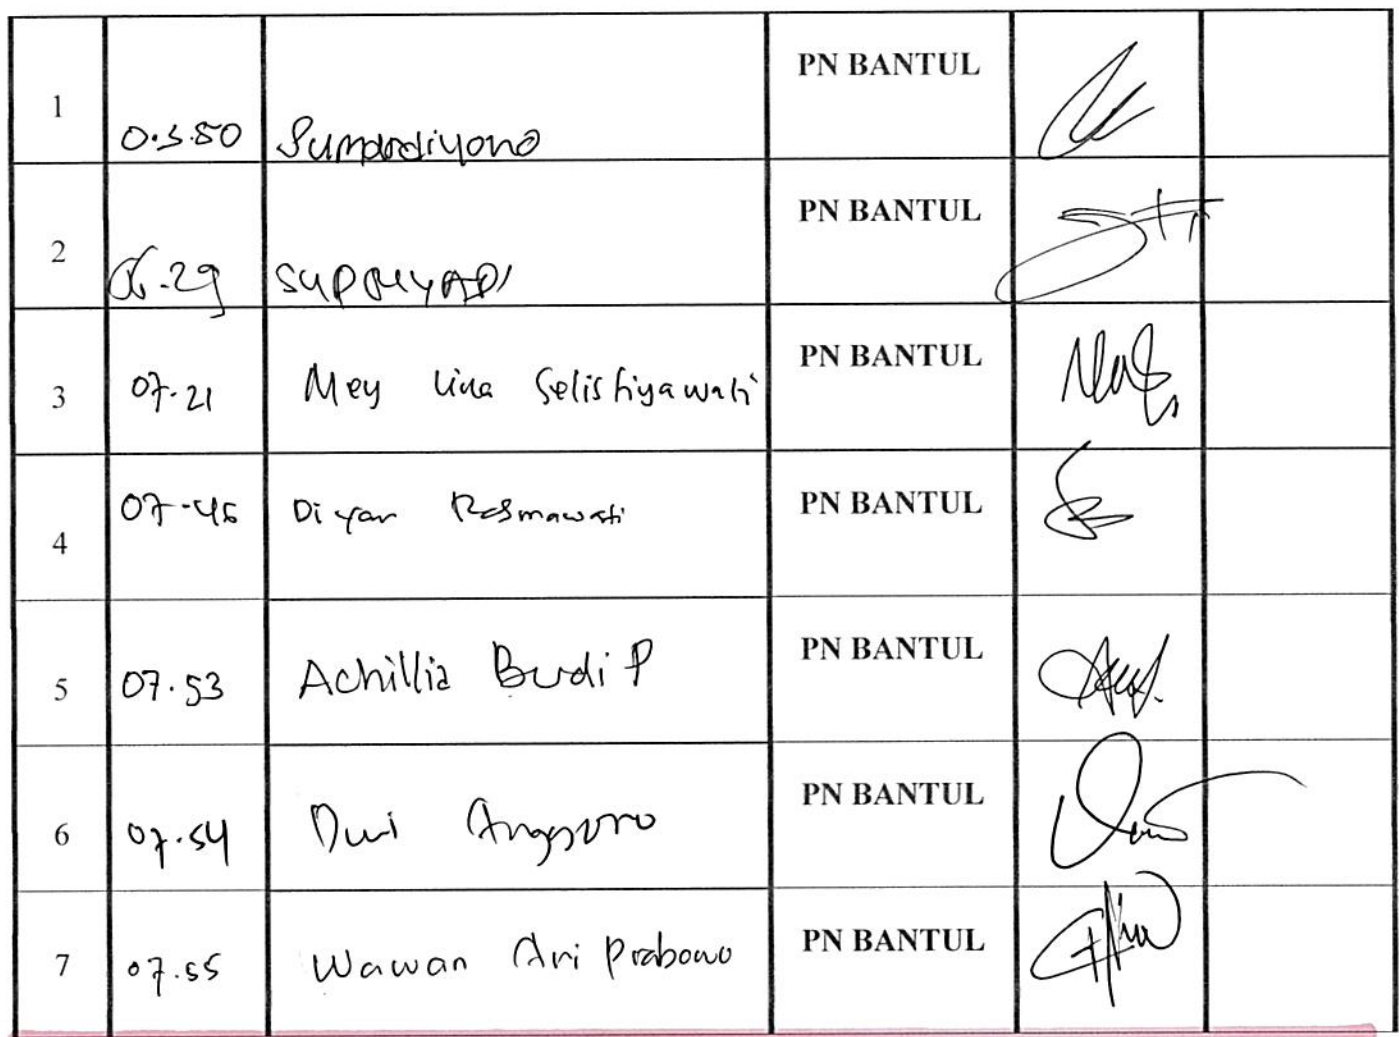 1 0.5.50 Sumardiyono PN BANTUL
2 06.29 SUPRIYADI PN BANTUL
3 07.21 Mey Lina Selistiyawati PN BANTUL
4 07-45 Diyan Rosmawati PN BANTUL
5 07.53 Achillia Budi P PN BANTUL
6 07.54 Dwi Anggoro PN BANTUL
7 07.55 Wawan Ari Prabowo PN BANTUL